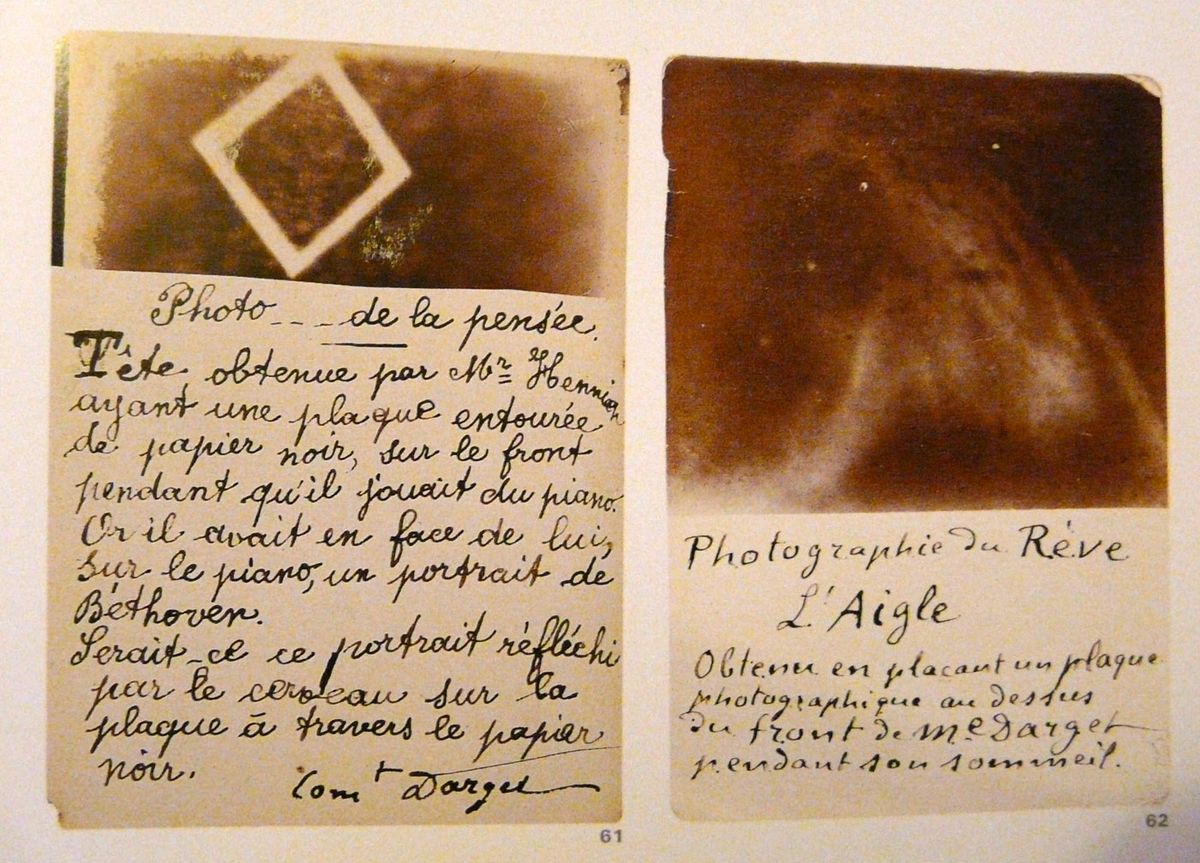 Photo ---- de la pensée.
Tête, obtenue par Mr Hennion
ayant une plaque entourée
de papier noir, sur le front
pendant qu'il jouait du piano.
Or il avait en face de lui,
sur le piano, un portrait de
Béthoven.
Serait-ce ce portrait réfléchi
par le cerveau sur la
plaque à travers le papier
noir.
Comt Darget
61
Photographie du Rêve
L'Aigle
Obtenu en plaçant un plaque
photographique au dessus
du front de Me Darget
pendant son sommeil.
62